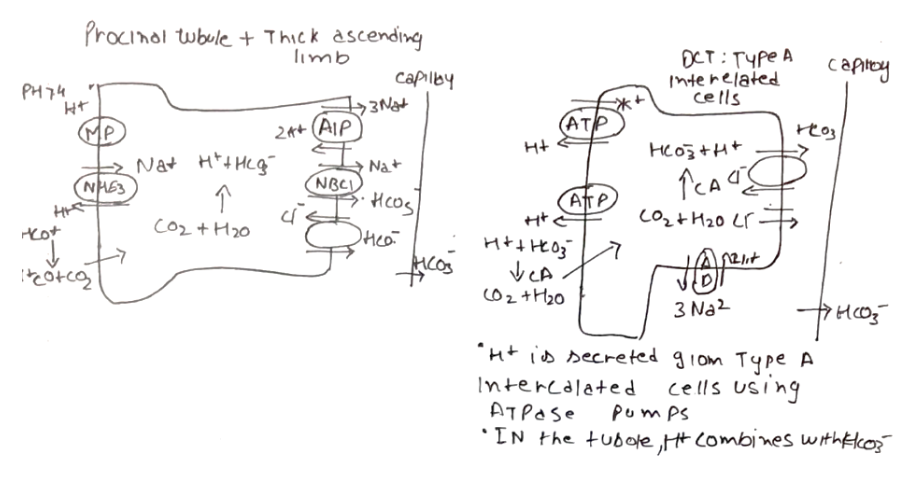 Procinal tubule + Thick ascending
limb
Capilby
PH74
H+
MP
Na+
NHE3
H+
H++HCO3-
CO2 + H2O
HCO+
+CO+CO2
3Na+
2K+
AIP
Na+
NBC1
HCO3
Cl-
HCO-
HCO3-
DCT : Type A
Interelated
cells
Capiroy
ATP
K+
H+
ATP
H+
H++HCO3-
CA
CO2+H2O
HCO3-+H+
CA
CO2+H2O
Cl-
HCO3
Cl-
3 Na2
HCO3-
• H+ is secreted giom Type A
Intercalated cells using
ATPase Pumps
• IN the tubole, H+ combines with HCO3-